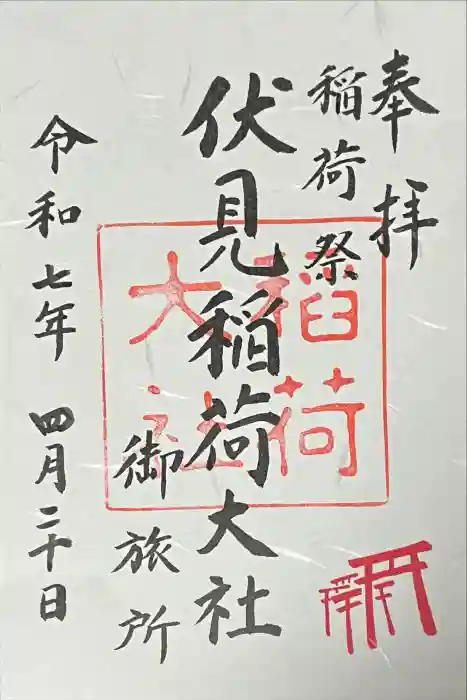 奉拝
稲荷祭
伏見稲荷大社
御旅所
令和七年 四月二十日
稲荷
大社